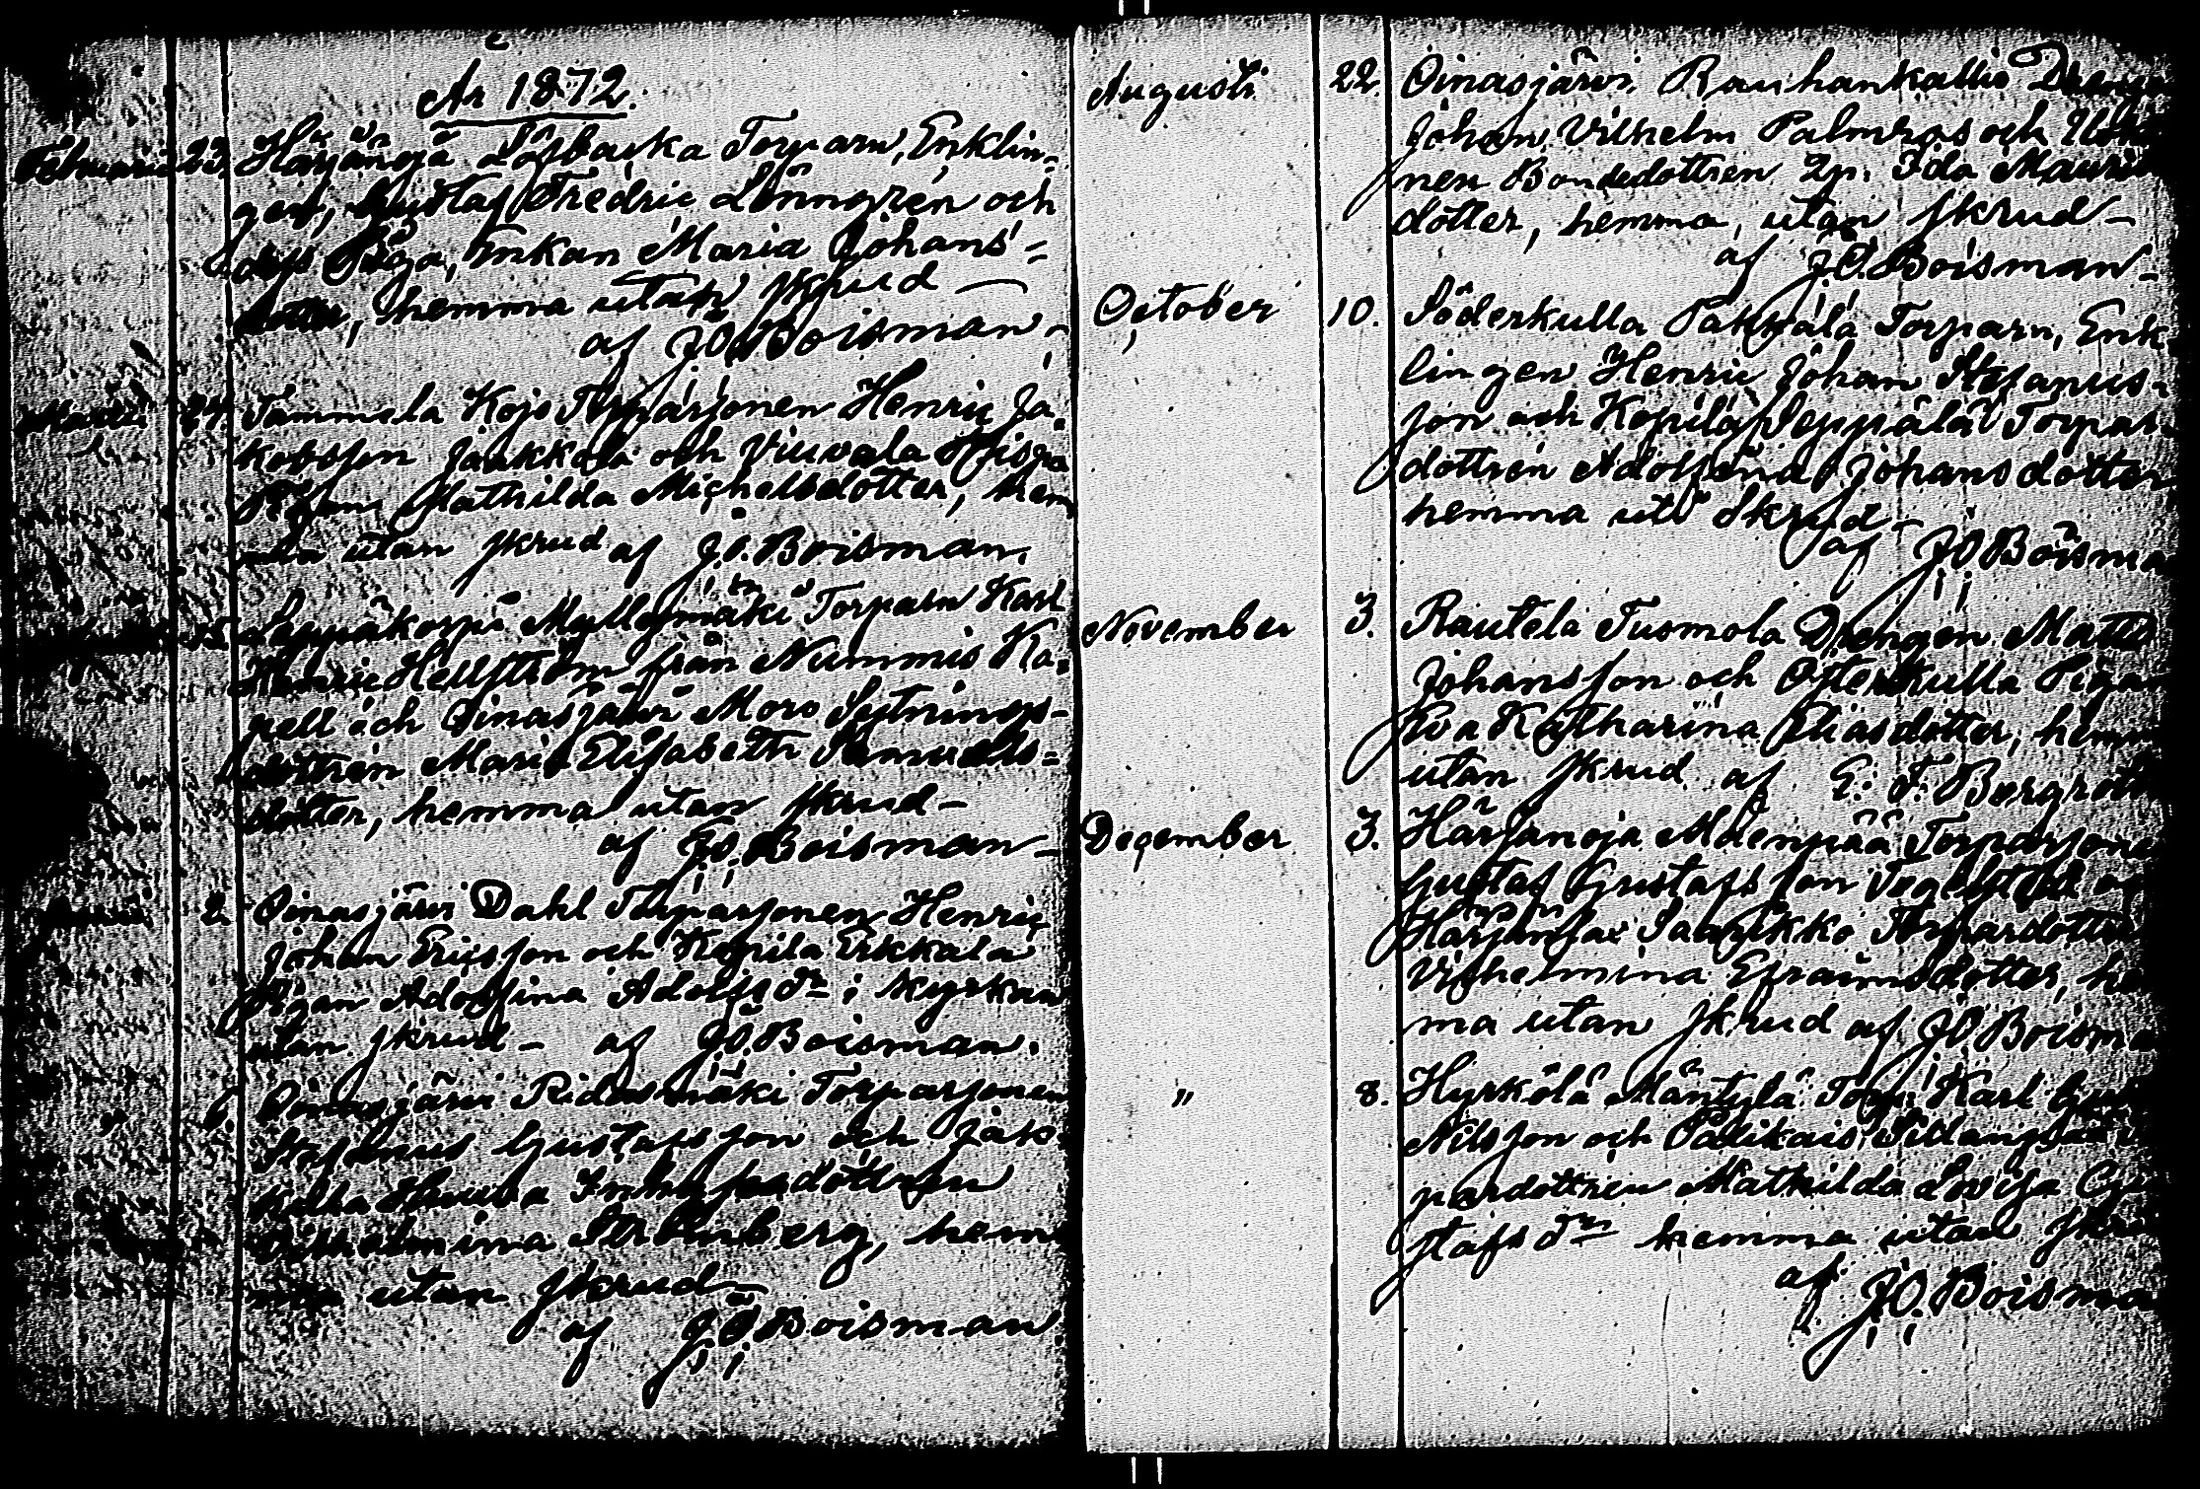 År 1872.
Februarii 23. Härjänoja Löfbacka Torparn, Enklin-
gen, Gustaf Fredric Lönngren och
dess Piga, Enkan Maria Johans-
dotter, hemma utan skrud —
af J.O. Boisman
Martii 24. Tammela Kojo Torparsonen Henric Ja-
kobsson Jaakkola och Viuvala
Pigan Mathilda Michelsdotter, hem
ma utan skrud af J.O. Boisman.
15. Leppäkorpi Myllymäki Torparn Karl
Henric Hellström från Nummis Ka-
pell och Oinasjärvi Moro Sytnings-
dottren Maria Elisabeth Samuels-
dotter, hemma utan skrud —
af J.O. Boisman —
2. Oinasjärvi Dahl Torparsonen Henric
Johan Ericsson och Kopila Erkkala
Pigan Adolfina Adolfs dr i kyrkan
utan skrud — af J.O. Boisman.
6. Oinasjärvi Ridasmäki Torparsonen
Stefanus Gustafsson och Jak-
Inhysesdottren
Vilhelmina Strömberg, hem
ma utan skrud —
af J.O. Boisman
Augusti 22. Oinasjärvi Rauhankallio Drengen
Johan Vilhelm Palmroos och
nen Bondedottren Qp. Ida Mauri
dotter, hemma, utan skrud —
af J.O. Boisman —
October 10. Söderkulla Pakkala Torparn, Enk
lingen Henric Johan Stefanus-
son och Kopila Seppälä Torpar-
dottren Adolfina Johansdotter
hemma utan Skrud —
af J.O. Boisma
November 3. Rautela Tusmola Drengen Matts
Johansson och Österkulla Pigan
Eva Katharina Eliasdotter, hem
utan skrud af E. F. Bergroth
December 3. Härjänoja Mäenpää Torparsonen
Gustaf Gustafsson och
Härjänoja Torpardottren
Vilhelmina Efraimsdotter, he
ma utan skrud af J.O. Boisma
" 8. Hyrkölä Mäntylä Torp. Karl Gust
Nilsson och Palikais
pardottren Mathilda Lovisa Gu
stafs dr hemma utan skru
af J.O. Boisma